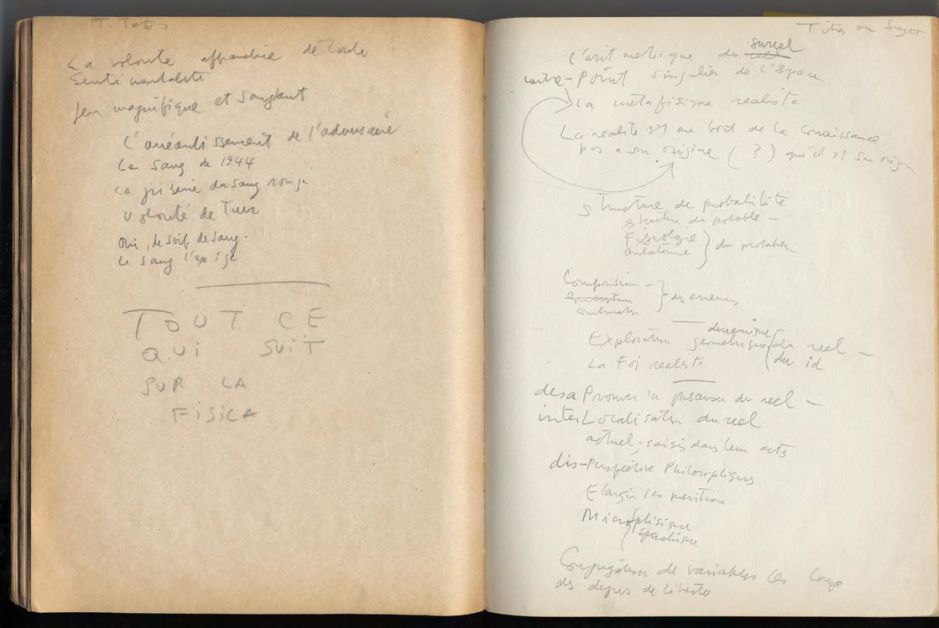 T. Tres
La volonté affranchie de toute
Sentimentalité
Jeu magnifique et sanglant
L'anéantissement de l'adversaire
Le Sang de 1944
La du sang rouge
Volonté de Tuer
Oui, le soif de sang.
Le sang l'exige
TOUT CE
QUI SUIT
SUR LA
FISICA
Titres ou Sujet
L'aritmetique du reel surreel
contre-Point singulier de l'Space
La metafisique realiste
La realité est au bord de la conaissance
pas a son origine (?) qu'il est son origen
Structure de probabilité
structure du probable -
Fisiologie
anatomie } du probable
Comprension -
combinaison } des erreurs
Exploration geometrique dinamique du reel -
du id
La Foi realiste
desa Prouver la presence du reel -
inter Localisation du reel
actuel; saisis dans leur acts
dis-Perspective Philosophiques
Elargir les
Micro phisique
Conjugation de variables les
des degres de liberté